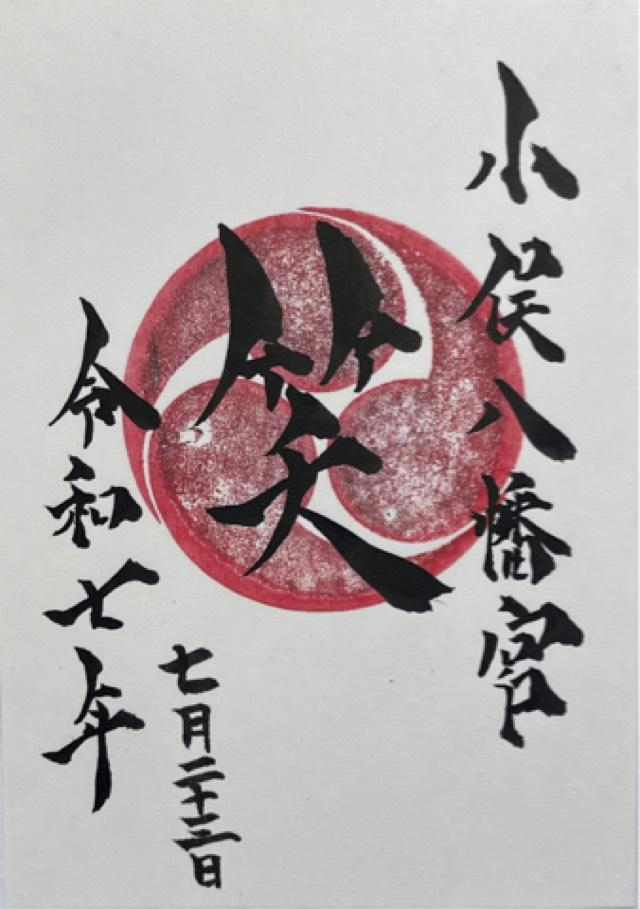 小俣八幡宮
笑
令和七年
七月二十三日